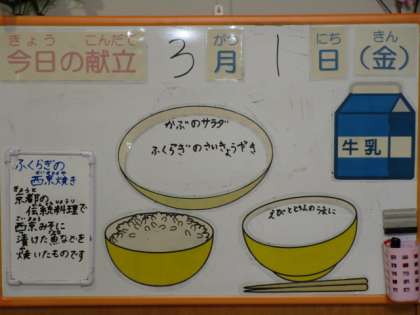 きょう こんだて
今日の献立
3
がつ
月
1
にち
日
きん
(金)
かぶのサラダ
ふくらぎのさいきょうやき
牛乳
ふくらぎの
西京焼き
京都の
伝統料理で
西京みそに
漬けた魚などを
焼いたものです